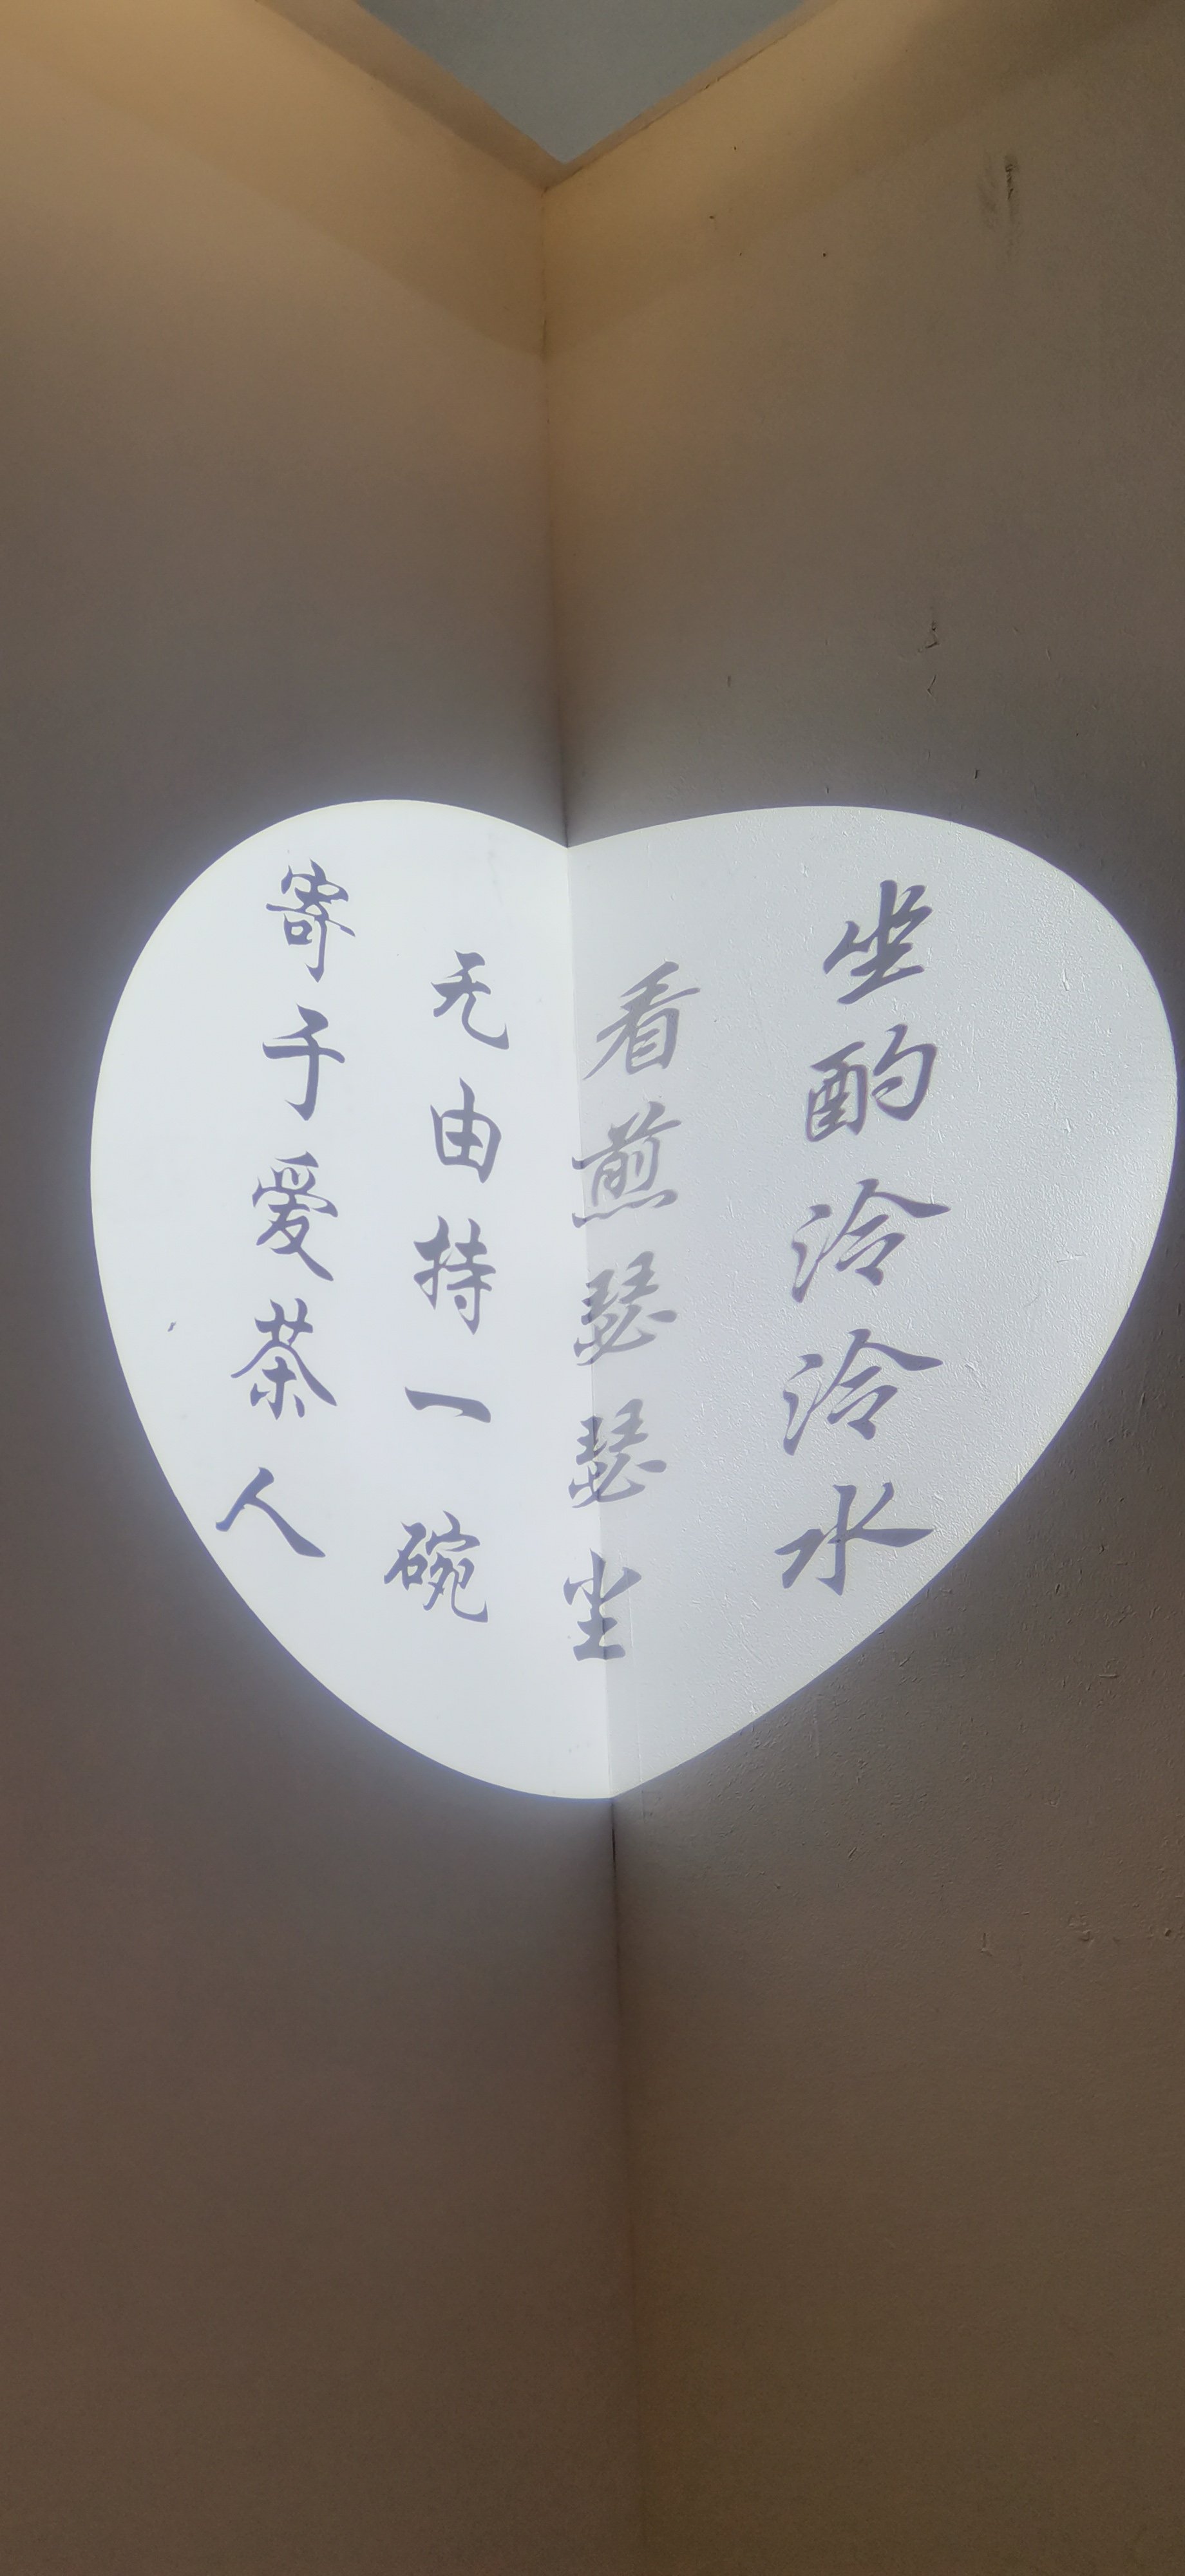 坐酌泠泠水
看煎瑟瑟尘
无由持一碗
寄于爱茶人